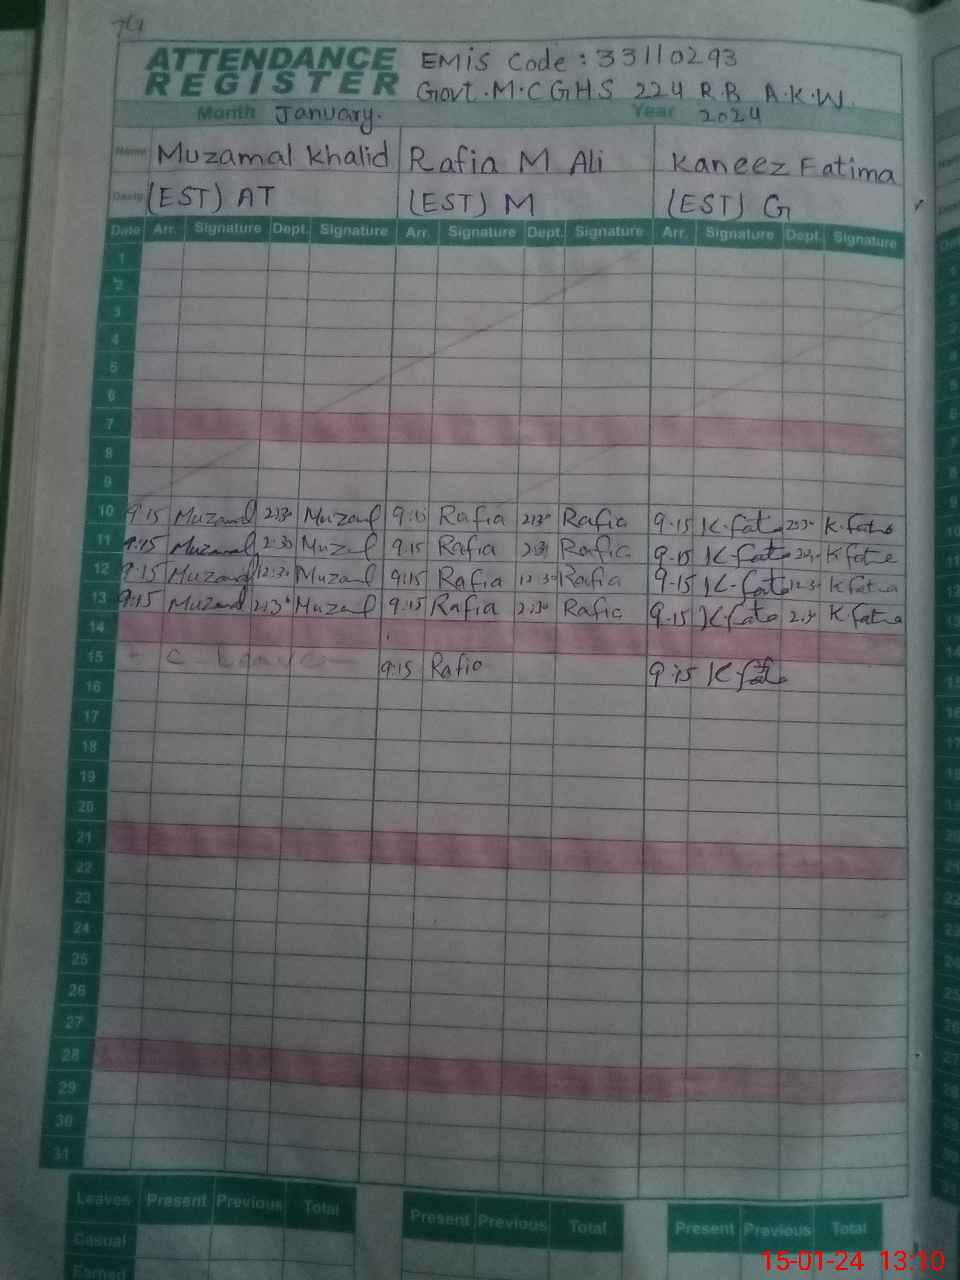 ATTENDANCE REGISTER
EMIS Code : 33110293
Govt. M.C GHS 224 R.B A.K.W.
Month January. Year 2024
Name Muzamal Khalid Rafia M Ali Kaneez Fatima
(EST) AT (EST) M (EST) G
Date Arr. Signature Dept. Signature Arr. Signature Dept. Signature Arr. Signature Dept. Signature
1
2
3
4
5
6
7
8
9
10 9:15 Muzamal 2:30 Muzamal 9:15 Rafia 2:30 Rafia 9.15 K.fate 2:30 K.fate
11 9:15 Muzamal 2:30 Muzamal 9:15 Rafia 2:30 Rafia 9.15 K.fate K fate
12 9:15 Muzamal 12:30 Muzamal 9:15 Rafia 12:30 Rafia 9.15 K.fate 12:30 K fate
13 9:15 Muzamal 2:30 Muzamal 9:15 Rafia 2:30 Rafia 9.15 K.fate 2:30 K fate
14
15 - C Leave 9:15 Rafia 9:15 K.fate
16
17
18
19
20
21
22
23
24
25
26
27
28
29
30
31
Leaves Present Previous Total Present Previous Total Present Previous Total
Casual
Earned
15-01-24 13:10